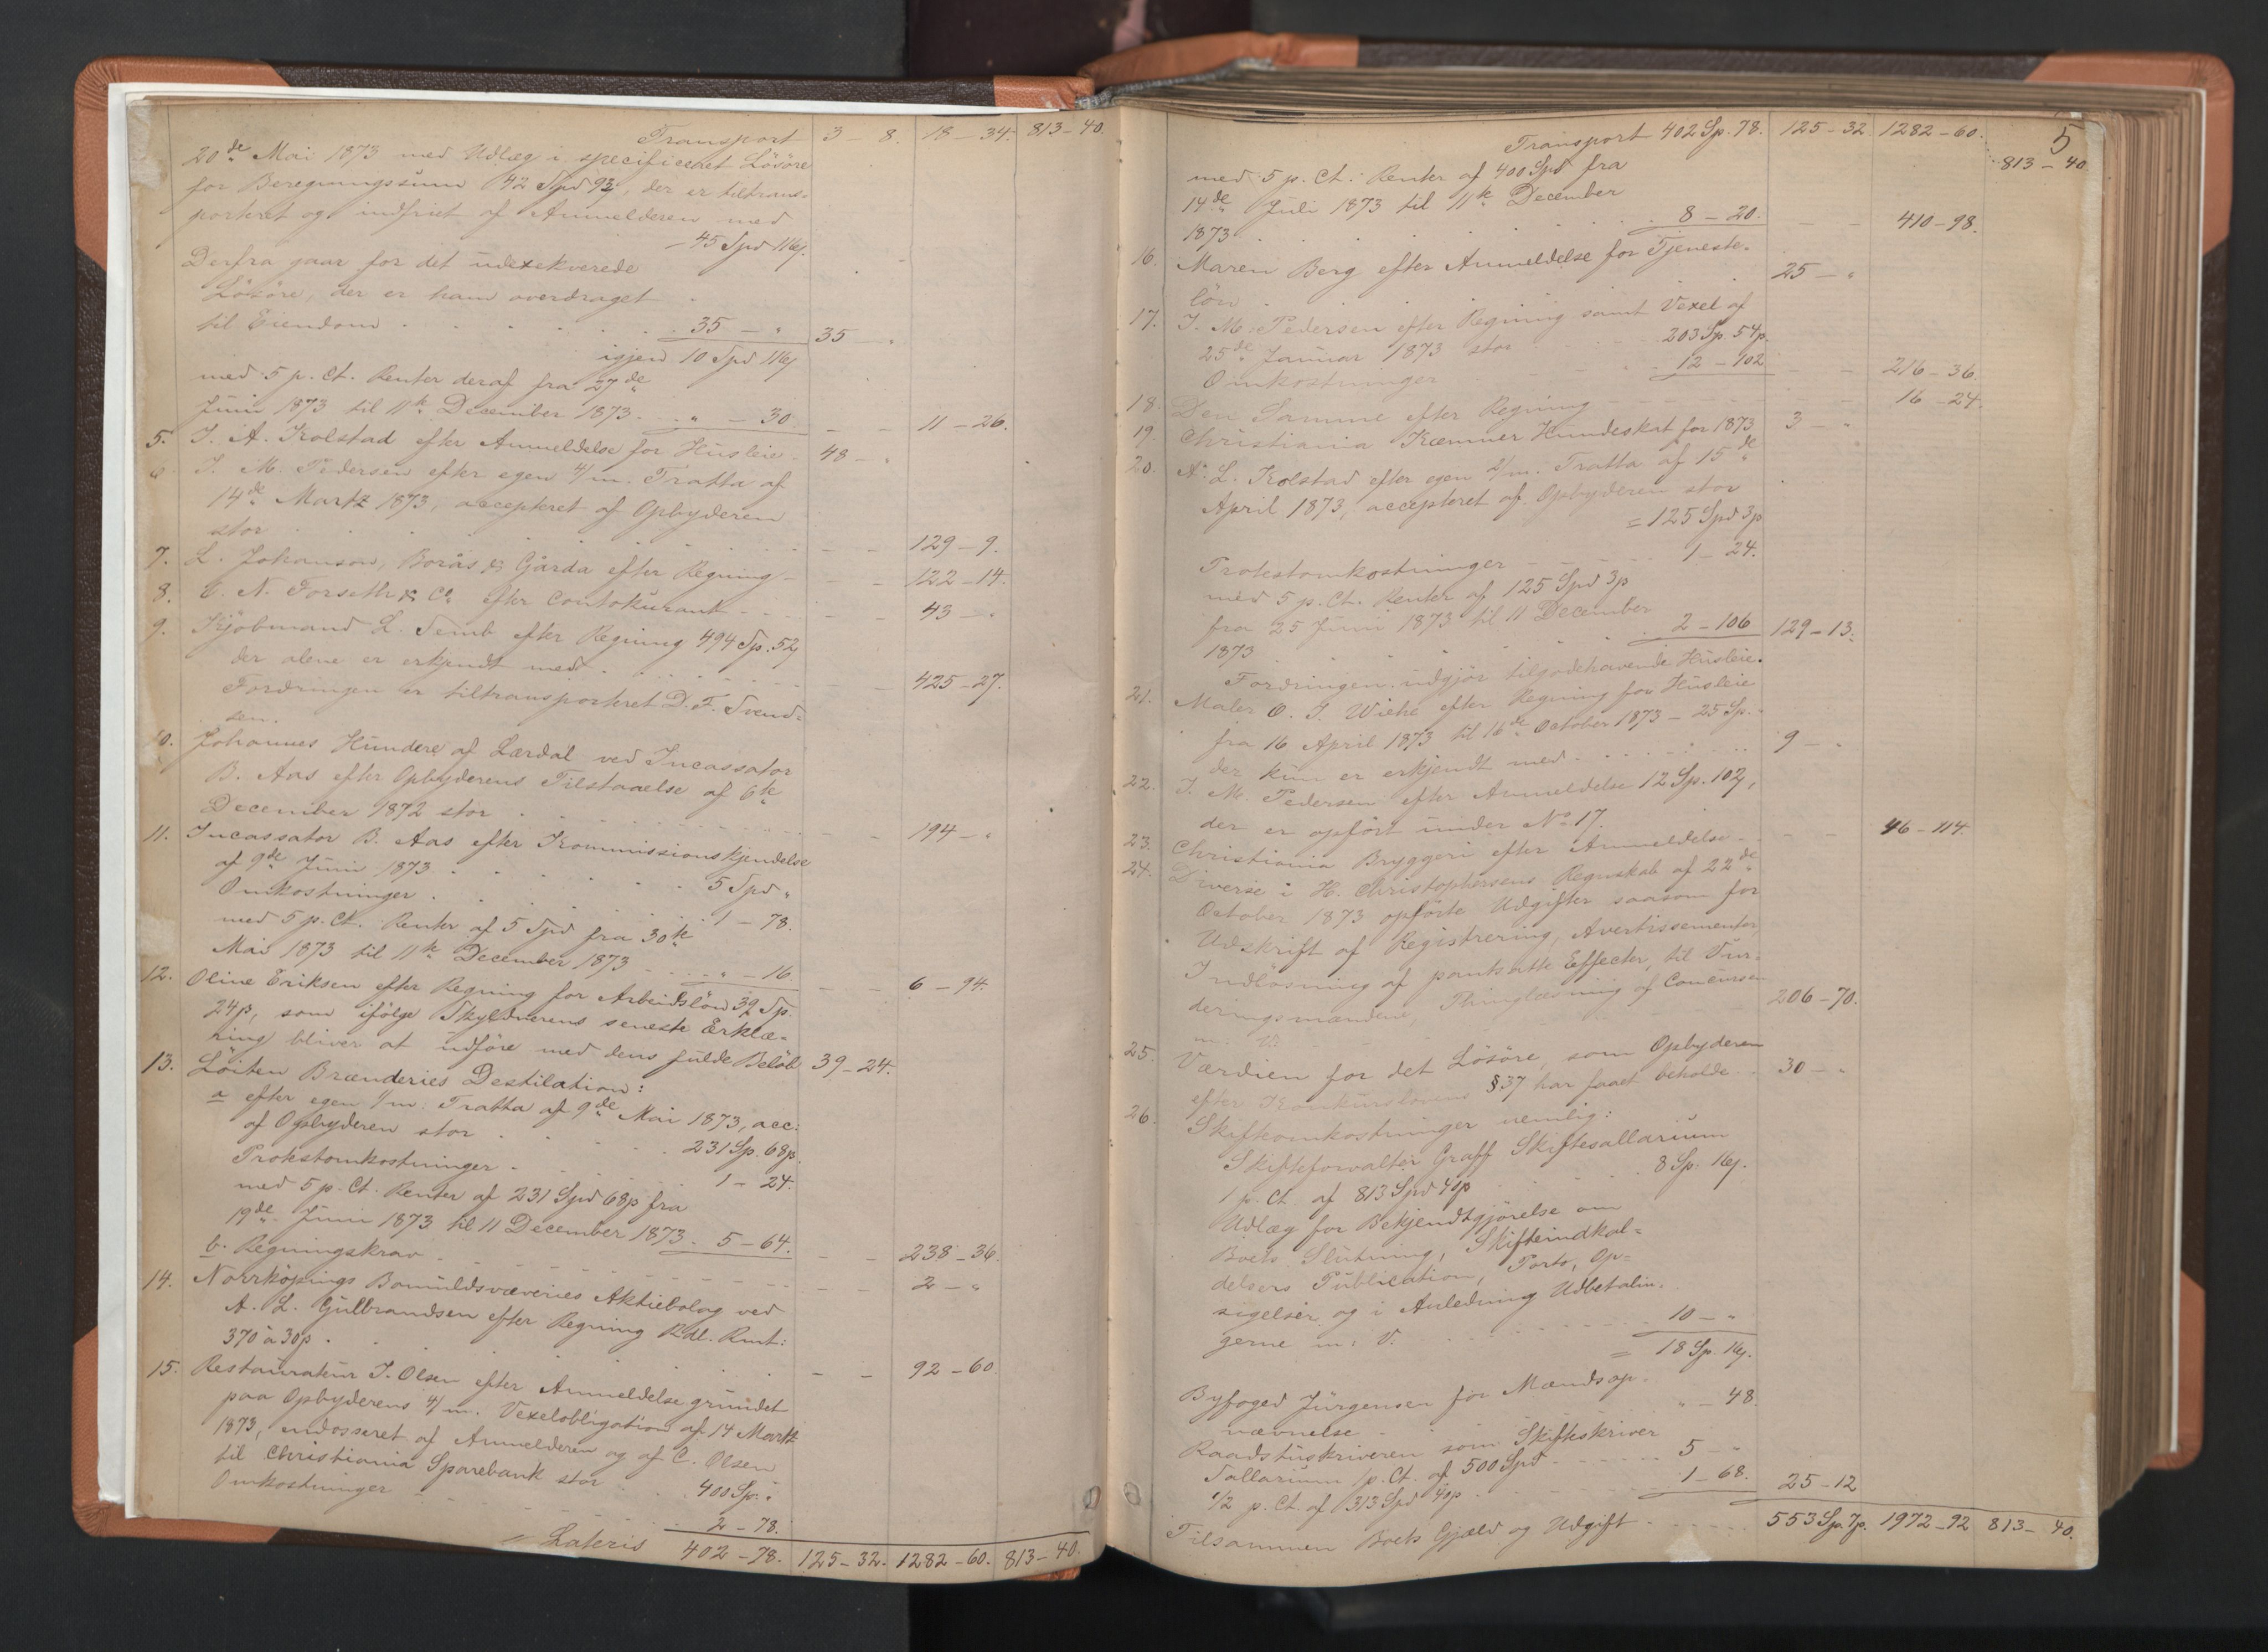 Transport 3 – 8. 18 – 34. 813 – 40.
20de Mai 1873 med Udlæg i specificeret Lösöre
for Beregningssum 42 Spd 93, der er tiltrans-
porteret og indfriet af Anmelderen med
45 Spd 116
Derfra gaar for det udexekverede
Lösöre, der er ham overdraget
til Eiendom . . . 35 – " 35 – "
igjen 10 Spd 116
med 5 p. Ct. Renter deraf fra 27de
Juni 1873 til 11te December 1873 . . " – 30. – – 11 – 26.
5. J. A. Kolstad efter Anmeldelse for Husleie 48 – "
6. J. M. Pedersen efter egen 4/m. Tratta af
14de Martz 1873, accepteret af Opbyderen
stor . . . – – 129 – 9.
7. L. Johanson, Borås & Gårda efter Regning – – – 122 – 14.
8. C. N. Forseth & Co efter Contokurant – – – 43 – "
9. Kjöbmand L. Semb efter Regning 494 Sp. 52
der alene er erkjendt med . . . – – 425 – 27.
Fordringen er tiltransporteret D. F. Svend-
sen.
10. Johannes Hundere af Lærdal ved Incassator
B. Aas efter Opbyderens Tilstaaelse af 6te
December 1872 stor . . . – – 194 – "
11. Incassator B. Aas efter Kommissionskjendelse
af 9de Juni 1873 . . . 5 Spd "
Omkostninger . . . 1 – 78.
med 5 p. Ct. Renter af 5 Spd fra 30te
Mai 1873 til 11te December 1873 . . " – 16. – – 6 – 94.
12. Oline Eriksen efter Regning for Arbeidslön 39 Sp.
24 p, som ifölge Skyldnerens seneste Erklæ-
ring bliver at udföre med dens fulde Belöb 39 – 24.
13. Löiten Brænderies Destilation:
a efter egen 1/m. Tratta af 9de Mai 1873, acc:
af Opbyderen stor . . . 231 Sp. 68 p.
Protestomkostninger . . . 1 – 24.
med 5 p. Ct. Renter af 231 Spd 68 p fra
19de Juni 1873 til 11 December 1873 . 5 – 64. – – 238 – 36.
b. Regningskrav . . . – – 2 – "
14. Norrköpings Bomuldsvæveries Aktiebolag ved
A. L. Gulbrandsen efter Regning Rdl. Rmt:
370 à 30 p . . . – – 92 – 60.
15. Restaurateur J. Olsen efter Anmeldelse grundet
paa Opbyderens 4/m. Vexelobligation af 14 Martz
1873, endosseret af Anmelderen og af C. Olsen
til Christiania Sparebank stor . . 400 Sp. "
Omkostninger . . . 2 – 78.
Lateris 402 – 78. 125 – 32. 1282 – 60. 813 – 40.
5
Transport 402 Sp. 78. 125 – 32. 1282 – 60. 813 – 40.
med 5 p. Ct. Renter af 400 Spd fra
14de Juli 1873 til 11te December
1873 . . . 8 – 20. – – 410 – 98.
16. Maren Berg efter Anmeldelse for Tjeneste-
lön . . . 25 – "
17. J. M. Pedersen efter Regning samt Vexel af
25de Januar 1873 stor . . . 203 Sp. 54 p.
Omkostninger . . . 12 – 102 – – 216 – 36.
18. Den Samme efter Regning . . . 16 – 24.
19. Christiania Kæmner Hundeskat for 1873 3 – "
20. A. L. Kolstad efter egen 2/m. Tratta af 15de
April 1873, accepteret af Opbyderen stor
= 125 Spd 3 p
Protestomkostninger . . . 1 – 24.
med 5 p. Ct. Renter af 125 Spd 3 p
fra 25 Juni 1873 til 11 December
1873 . . . 2 – 106 129 – 13.
Fordringen udgjör tilgodehavende Husleie.
21. Maler O. J. Wiehe efter Regning for Husleie
fra 16 April 1873 til 16de October 1873 – 25 Sp.
der kun er erkjendt med . . . 9 – "
22. J. M. Pedersen efter Anmeldelse 12 Sp. 102,
der er opfört under No 17.
23. Christiania Bryggeri efter Anmeldelse . . . 46 – 114.
24. Diverse i H. Christophersens Regnskab af 22de
October 1873 opförte Udgifter saasom for
Udskrift af Registrering, Avertissementer,
Indlösning af pantsatte Effecter, til Vur-
deringsmændene, Thinglæsning af Concursen
m. V. . . . 206 – 70.
25. Værdien for det Lösöre, som Opbyderen
efter Konkurslovens § 37 har faaet beholde . . 30 – "
26. Skifteomkostninger nemlig:
Skifteforvalter Graff Skiftesallarium
1 p. Ct. af 813 Spd 40 p . . . 8 Sp. 16
Udlæg for Bekjendtgjörelse om
Boets Slutning, Skifteindkal-
delsers Publication, Porto, Op-
sigelser og i Anledning Udbetalin-
gerne m. V. . . . 10 – "
= 18 Sp. 16
Byfoged Jürgensen for Mændsop-
nævnelse . . . " – 48.
Raadstueskriveren som Skifteskriver
Sallarium 1 p. Ct. af 500 Spd . . . 5 – "
1/2 p. Ct. af 313 Spd 40 p . . . 1 – 68. 25 – 12
Tilsammen Boets Gjæld og Udgift . . . 553 Sp. 7 p. 1972 – 92 813 – 40.